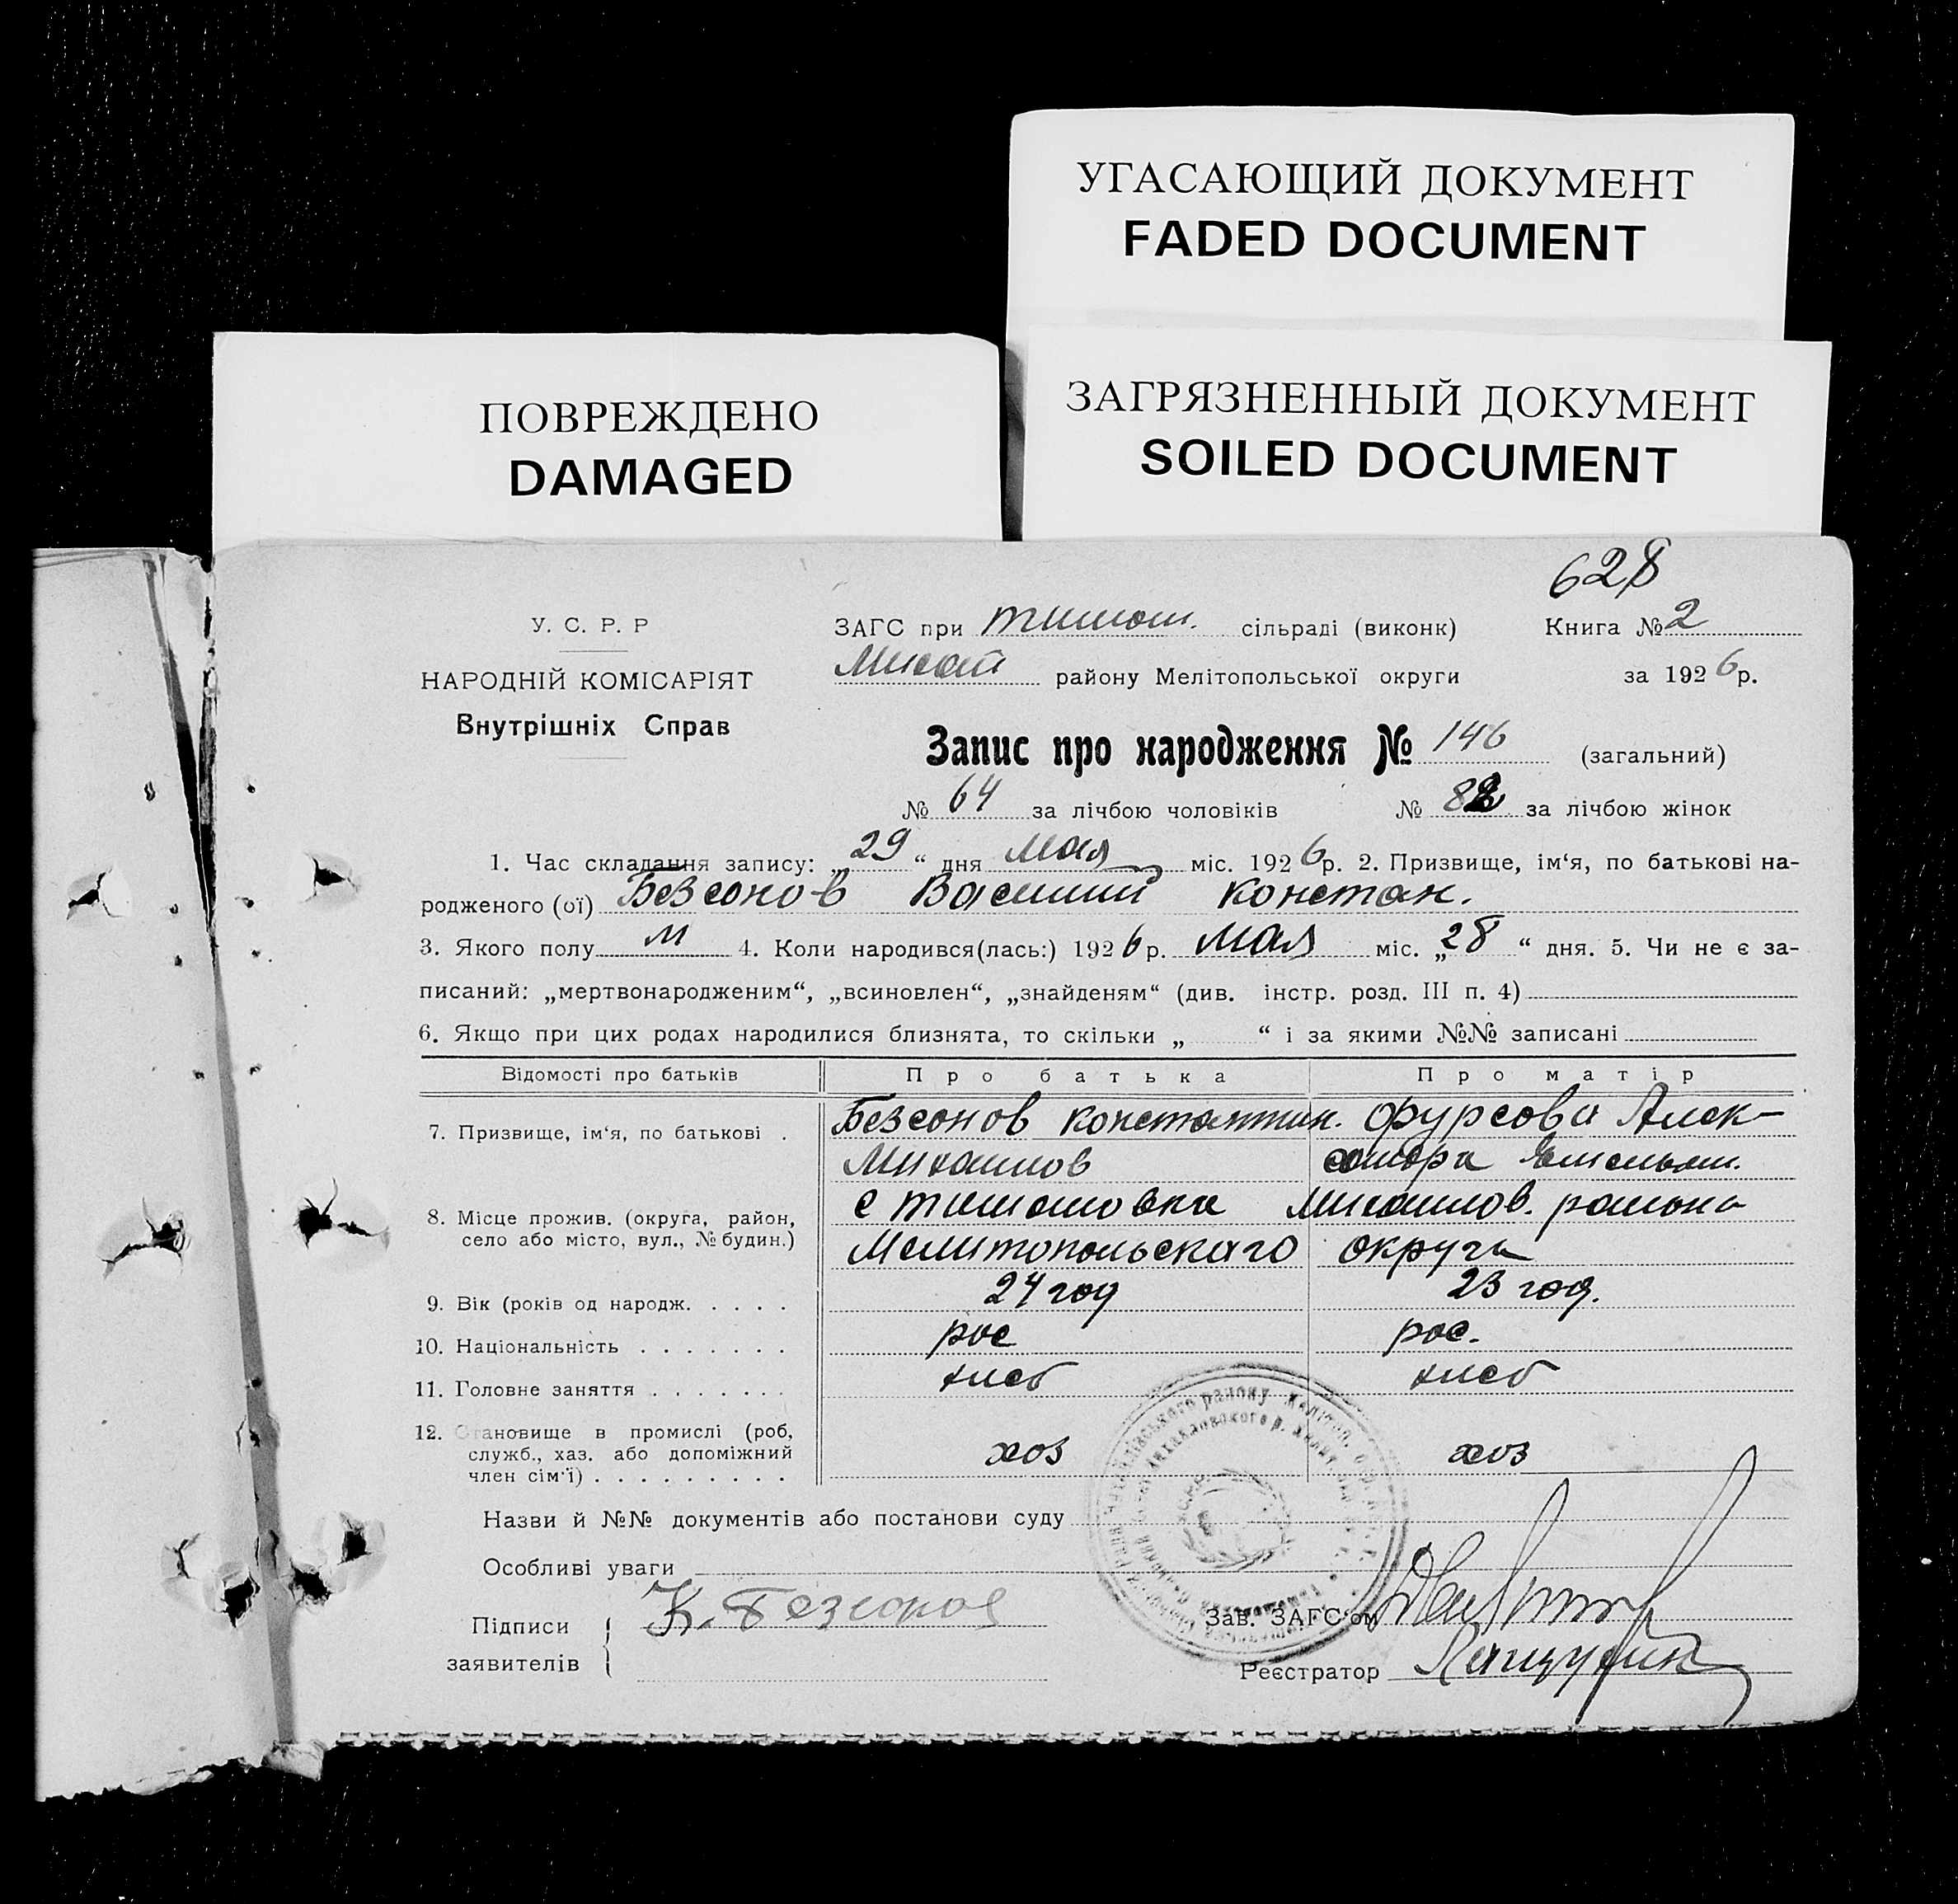 УГАСАЮЩИЙ ДОКУМЕНТ
FADED DOCUMENT
ПОВРЕЖДЕНО
DAMAGED
ЗАГРЯЗНЕННЫЙ ДОКУМЕНТ
SOILED DOCUMENT
628
У. С. Р. Р
НАРОДНІЙ КОМІСАРІЯТ
Внутрішніх Справ
ЗАГС при тимош. сільраді (виконк) Книга № 2
Михай району Мелітопольської округи за 1926 р.
Запис про народження № 146 (загальний)
№ 64 за лічбою чоловіків № 82 за лічбою жінок
1. Час складання запису: „29“ дня мая міс. 1926 р. 2. Призвище, ім‘я, по батькові на-
родженого (ої) Безсонов Василий констан.
3. Якого полу м 4. Коли народився(лась:) 1926 р. мая міс. „28“ дня. 5. Чи не є за-
писаний: „мертвонародженим“, „всиновлен“, „знайденям“ (див. інстр. розд. III п. 4)
6. Якщо при цих родах народилися близнята, то скільки „ “ і за якими №№ записані
Відомості про батьків Про батька Про матір
7. Призвище, ім‘я, по батькові . Безсонов константин. Фурсова Алек-
Михаилов сандра Емельян.
8. Місце прожив. (округа, район, с тимошовка Михаилов. района
село або місто, вул., № будин.) Мелитопольскаго округа
9. Вік (років од народж. . . . . 24 год 23 год.
10. Національність . . . . . . . рос рос.
11. Головне заняття . . . . . . . хлеб хлеб
12. Становище в промислі (роб,
служб., хаз. або допоміжний хоз хоз
член сім‘ї) . . . . . . . . .
Назви й №№ документів або постанови суду
Особливі уваги
Підписи К. Безсонов Зав. ЗАГС‘ом
заявителів Реєстратор